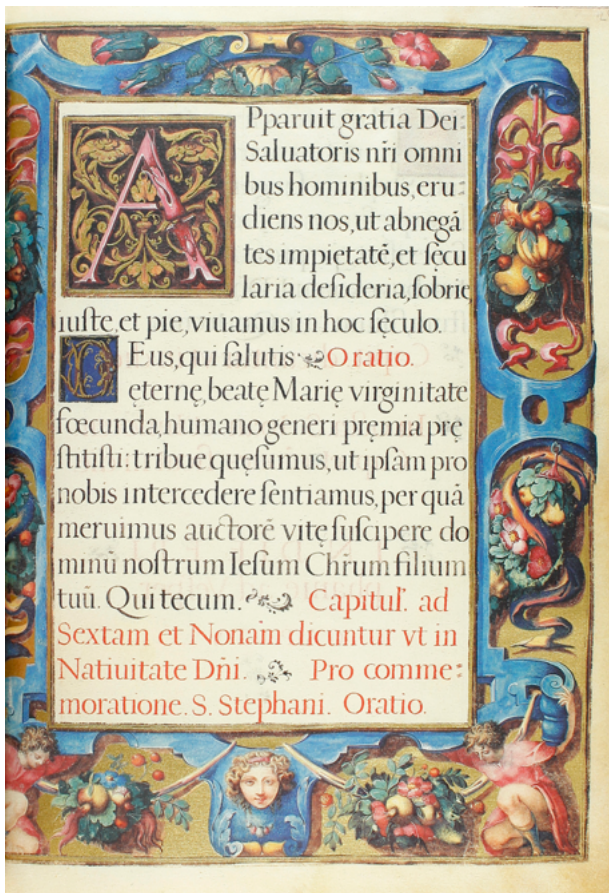 Apparuit gratia Dei:
Saluatoris nr̃i omni
bus hominibus, eru:
diens nos, ut abnegã
tes impietatẽ, et sęcu
laria deſideria, ſobrie,
iuſte, et pie, viuamus in hoc ſęculo.
DEus, qui ſalutis Oratio.
ęternę, beatę Marię virginitate
fœcunda, humano generi pręmia prę
ſtitiſti: tribue quęſumus, ut ipſam pro
nobis intercedere ſentiamus, per quã
meruimus auctorẽ vitę ſuſcipere do
minũ noſtrum Ieſum Chrum filium
tuũ. Qui tecum. Capitul'. ad
Sextam et Nonam dicuntur vt in
Natiuitate Dñi. Pro comme:
moratione. S. Stephani. Oratio.